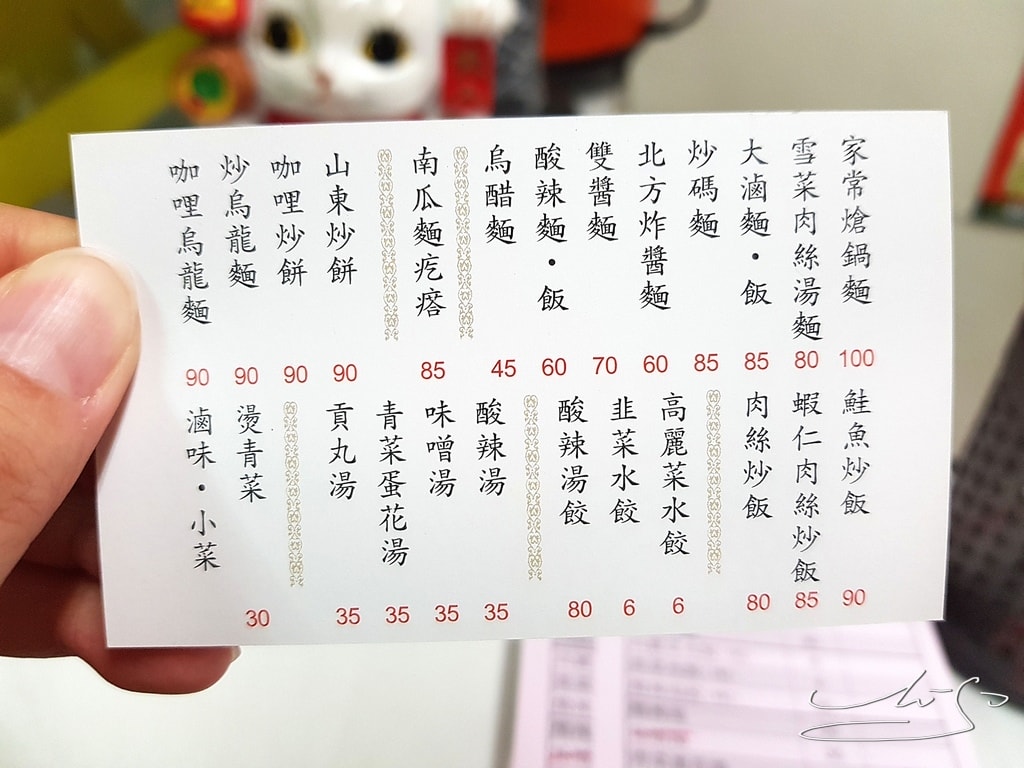 家常熗鍋麵 100
雪菜肉絲湯麵 80
大滷麵・飯 85
炒碼麵 85
北方炸醬麵 60
雙醬麵 70
酸辣麵・飯 60
烏醋麵 45
南瓜麵疙瘩 85
山東炒餅 90
咖哩炒餅 90
炒烏龍麵 90
咖哩烏龍麵 90
鮭魚炒飯 90
蝦仁肉絲炒飯 85
肉絲炒飯 80
高麗菜水餃 6
韭菜水餃 6
酸辣湯餃 80
酸辣湯 35
味噌湯 35
青菜蛋花湯 35
貢丸湯 35
燙青菜 30
滷味・小菜